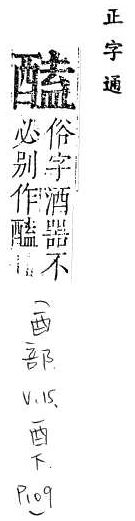 正字通
醘
俗字酒器不
必别作醘
(酉部. V.15. 酉下. P109)